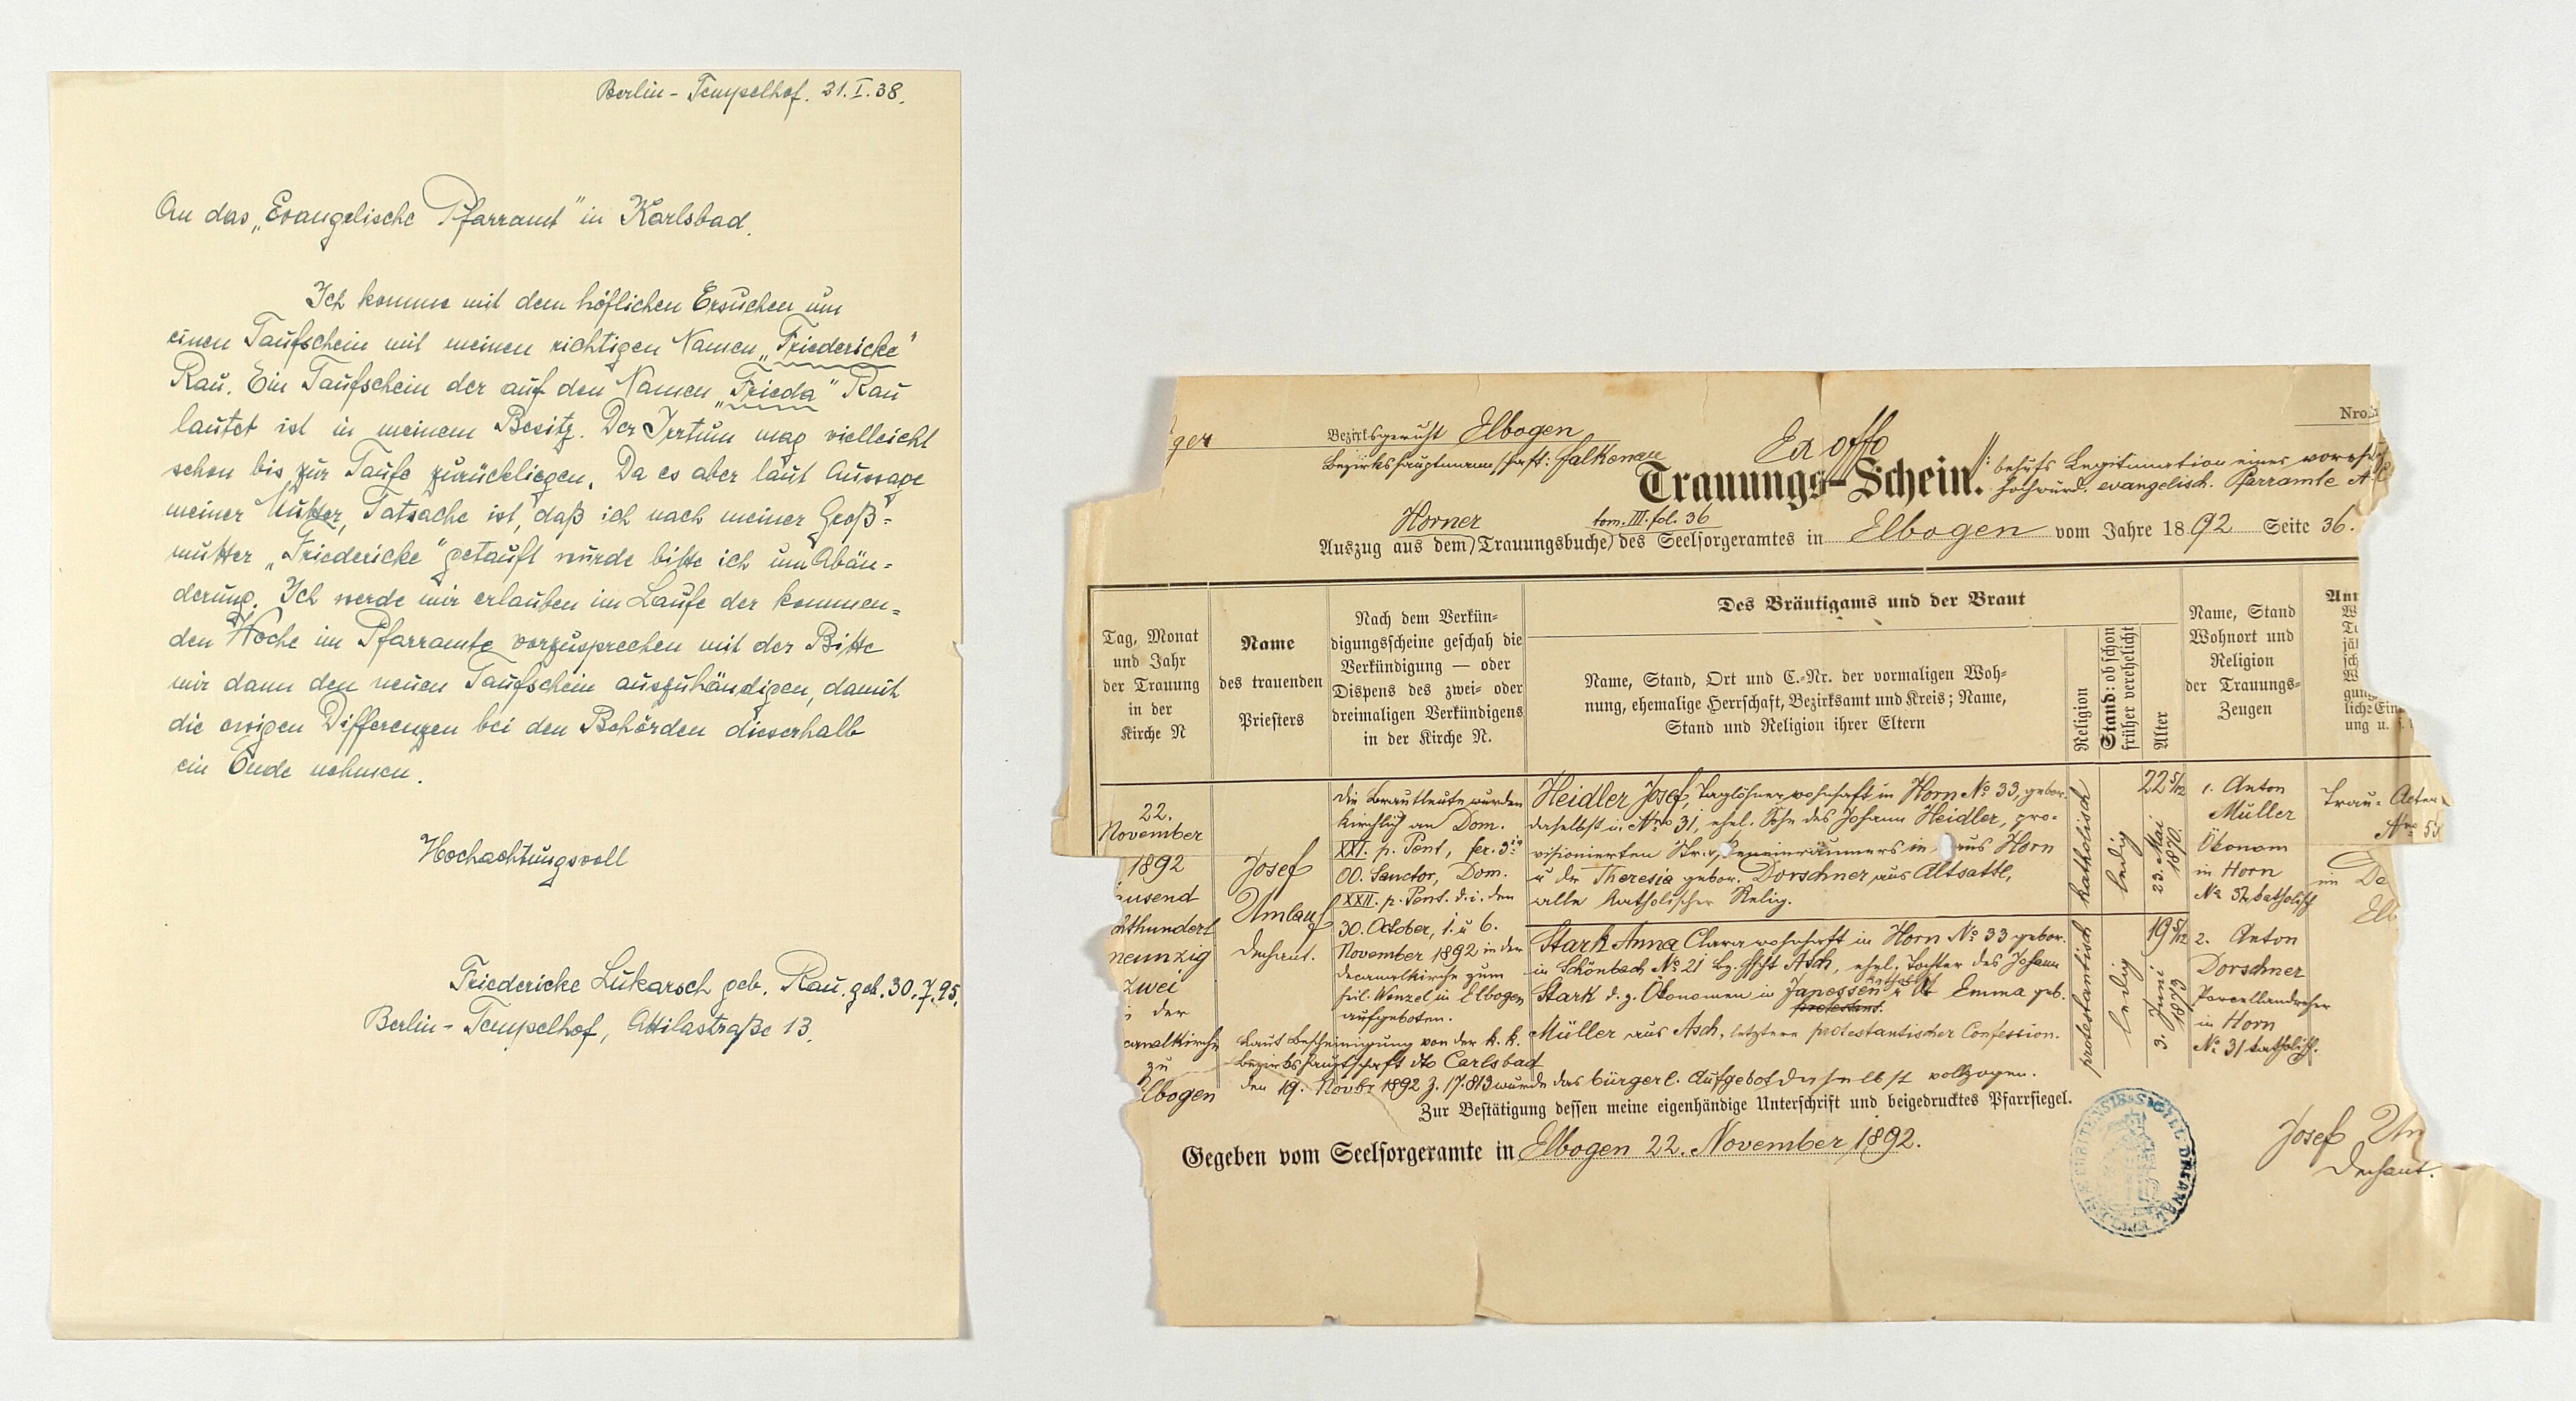 Berlin - Tempelhof. 31. I. 38.
An das „Evangelische Pfarramt" in Karlsbad.
Ich komme mit dem höflichen Ersuchen um
einen Taufschein mit meinen richtigen Namen „Friedericke"
Rau. Ein Taufschein der auf den Namen „Frieda" Rau
lautet ist in meinem Besitz. Der Irrtum mag vielleicht
schon bis zur Taufe zurückliegen. Da es aber laut Aussage
meiner Mutter, Tatsache ist, daß ich nach meiner Groß=
mutter „Friedericke" getauft wurde bitte ich um Abän=
derung. Ich werde mir erlauben im Laufe der kommen=
den Woche im Pfarramte vorzusprechen mit der Bitte
mir dann den neuen Taufschein auszuhändigen, damit
die ewigen Differenzen bei den Behörden dieserhalb
ein Ende nehmen.
Hochachtungsvoll
Friedericke Lukarsch geb. Rau. geb. 30.7.95.
Berlin - Tempelhof, Attilastraße 13.
Nro.
ger
Bezirksgericht Elbogen
Bezirkshauptmannschaft: Falkenau
Ex offo
Trauungs-Schein.
behufs Legitimation eines
hochwürd. evangelisch. Pfarramte A
Horner
tom. III. fol. 36
Auszug aus dem Trauungsbuche des Seelsorgeramtes in Elbogen vom Jahre 1892 Seite 36.
Tag, Monat
und Jahr
der Trauung
in der
Kirche N
Name
des trauenden
Priesters
Nach dem Verkün-
digungsscheine geschah die
Verkündigung — oder
Dispens des zwei- oder
dreimaligen Verkündigens
in der Kirche N.
Des Bräutigams und der Braut
Name, Stand, Ort und C.-Nr. der vormaligen Woh-
nung, ehemalige Herrschaft, Bezirksamt und Kreis; Name,
Stand und Religion ihrer Eltern
Religion
Stand: ob schon
früher verehelicht
Alter
Name, Stand
Wohnort und
Religion
der Trauungs-
Zeugen
22.
November
1892
ausend
hthundert
neunzig
zwei
der
canalkirche
zu
lbogen
Josef
Umlauf
Dechant.
Die Brautleute wurden
kirchlich an Dom.
XXI. p. Pent, fer. 3ia
OO. Sanctor, Dom.
XXII. p. Pent. d. i. den
30. October, 1. u 6.
November 1892 in der
Decanalkirche zum
heil. Wenzel in Elbogen
aufgeboten.
Laut Bescheinigung von der k. k.
Bezirkshauptschaft dto Carlsbad
den 19. Novbr 1892 Z. 17.813 wurde das bürgerl. Aufgebot daselbst vollzogen.
Heidler Josef, Taglöhner wohnhaft in Horn No 33, gebor.
daselbst in Nro 31, ehel. Sohn des Johann Heidler, pro-
visionierten aus Horn
u der Theresia gebor. Dorschner aus Altsattl,
alle katholischer Relig.
katholisch
ledig
22 5/12
23. Mai
1870.
Stark Anna Clara wohnhaft in Horn No 33 gebor.
in Schönbach No 21 Asch, ehel. Tochter des Johann
Stark d. z. Ökonomen in Janessen u der Emma geb.
Müller aus Asch, letztere protestantischer Confession.
protestantisch
ledig
19 5/12
3. Juni
1873
1. Anton
Müller
Ökonom
in Horn
katholisch
2. Anton
Dorschner
Porcellandreher
in Horn
No 31 katholisch.
Trau=Acten
Zur Bestätigung dessen meine eigenhändige Unterschrift und beigedrucktes Pfarrsiegel.
Gegeben vom Seelsorgeramte in Elbogen 22. November 1892.
Josef Um
Dechant.